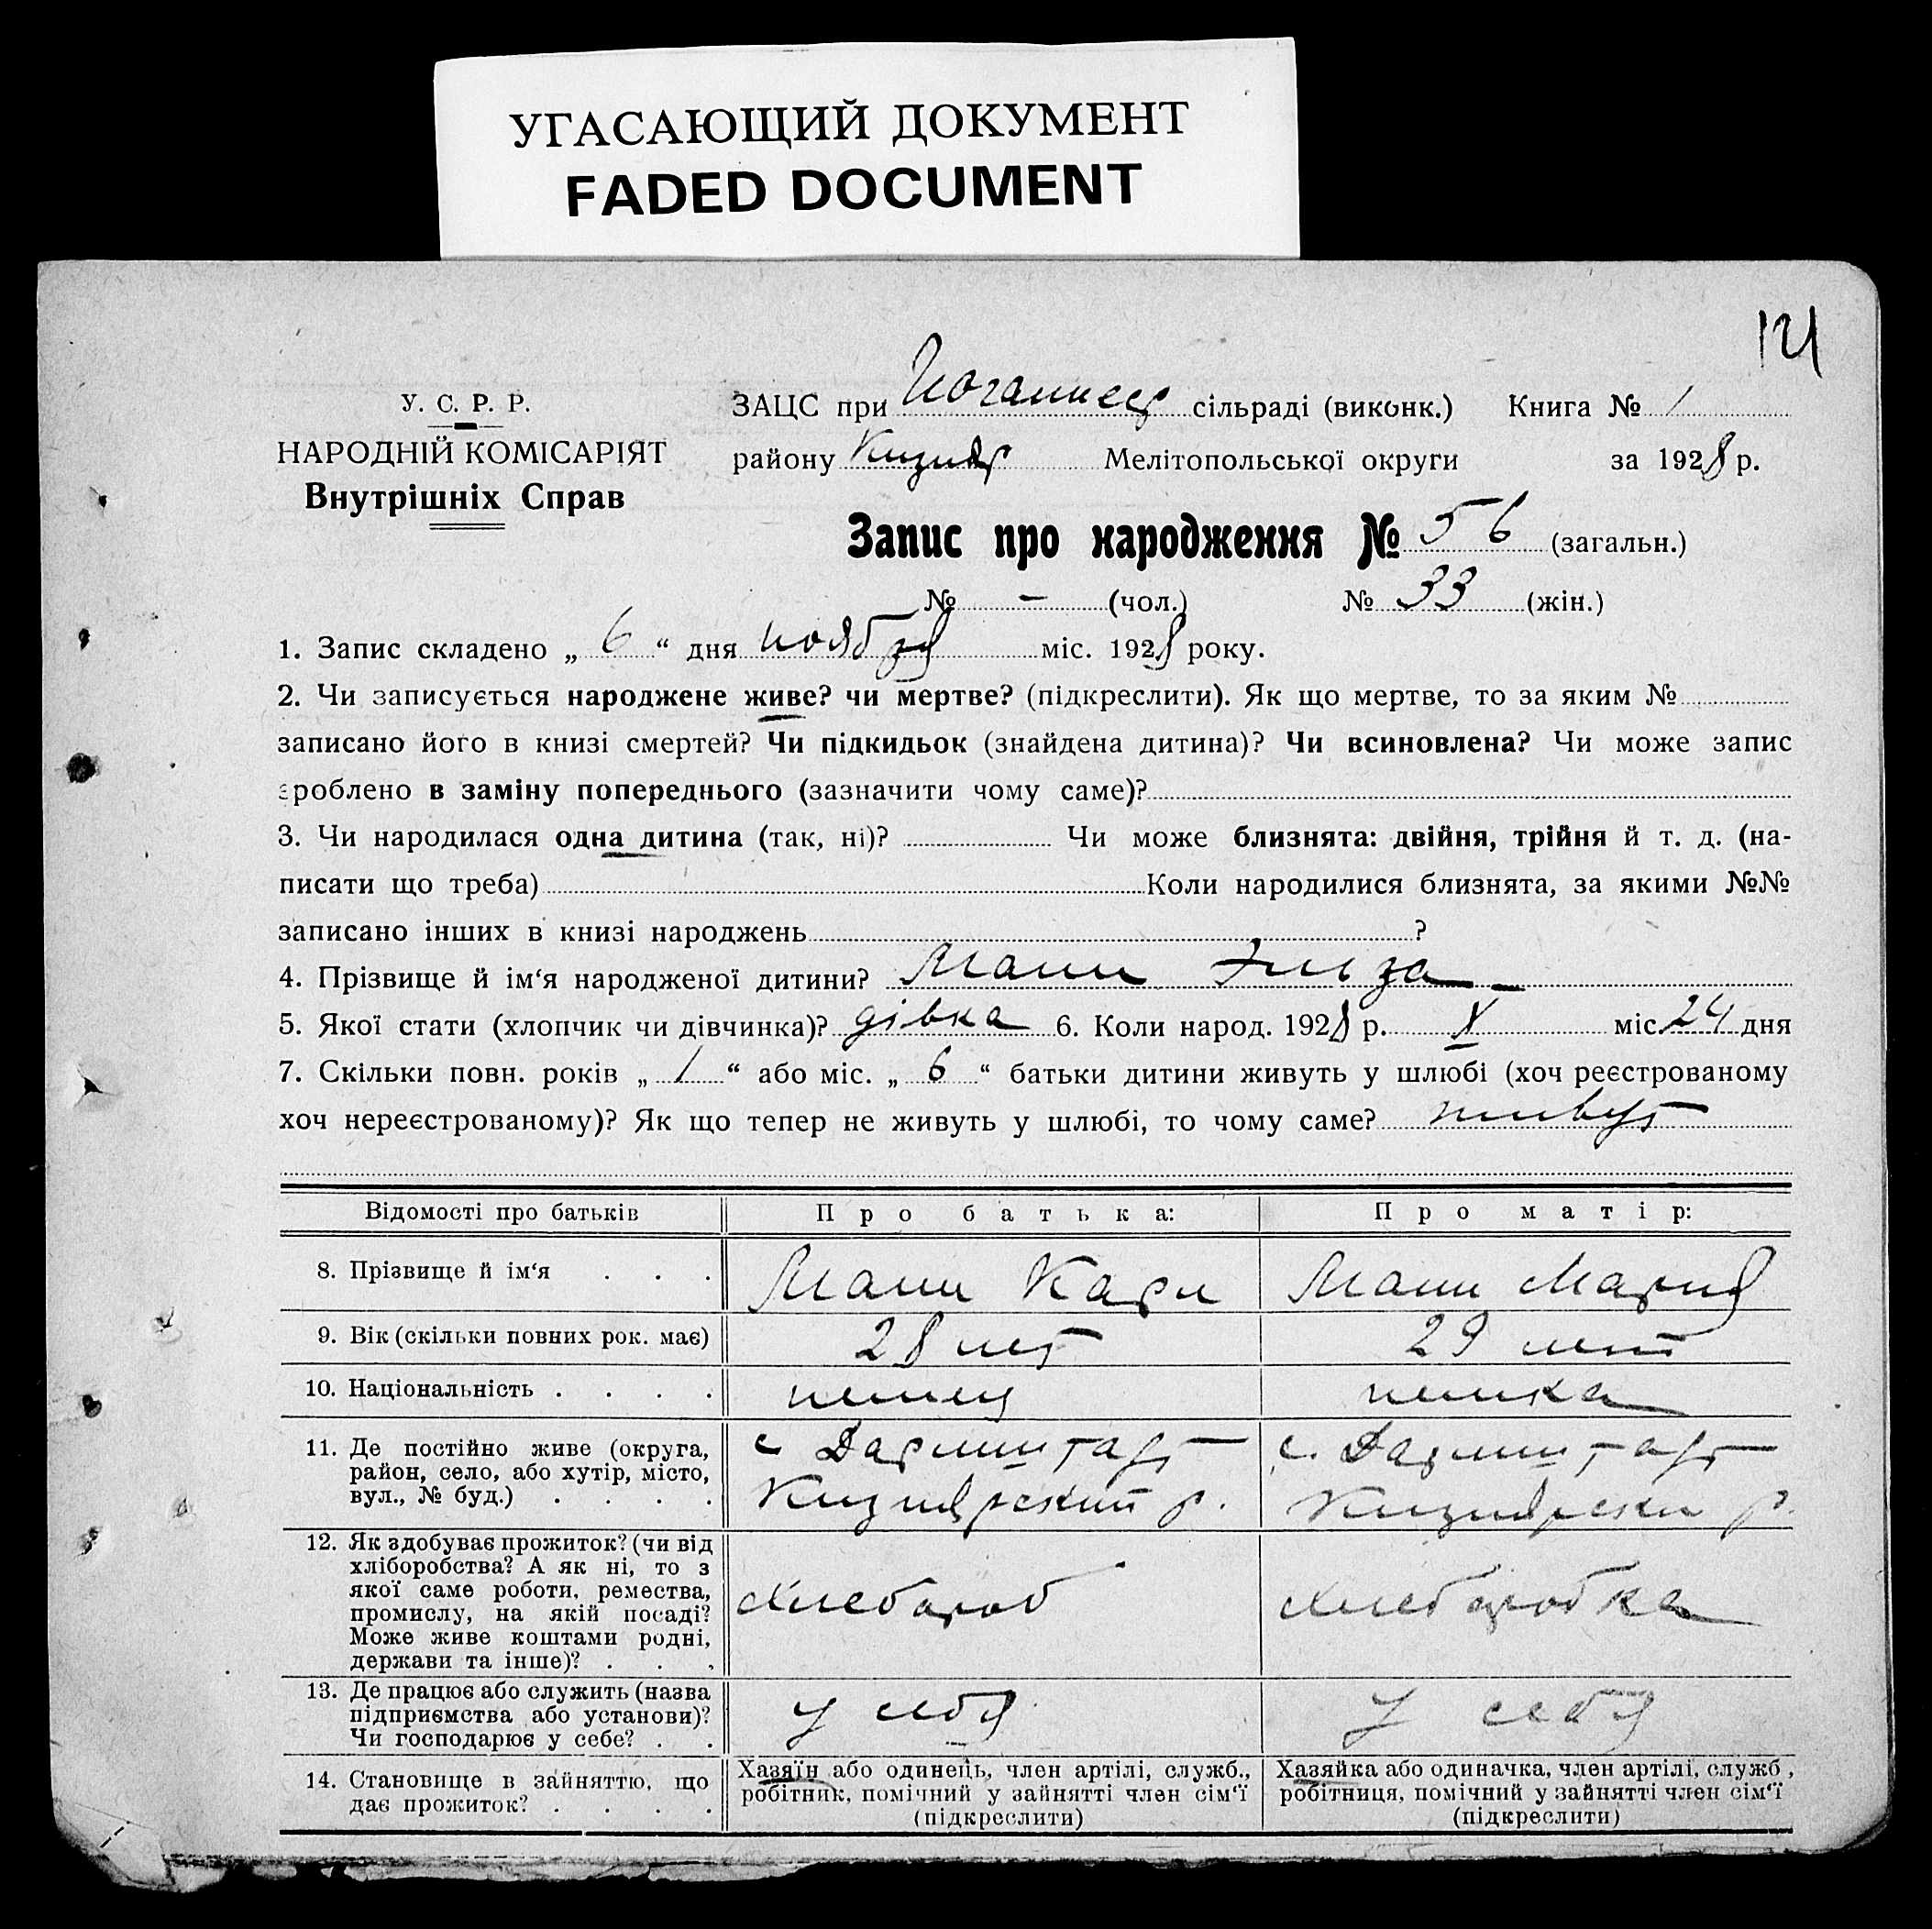 УГАСАЮЩИЙ ДОКУМЕНТ
FADED DOCUMENT
У. С. Р. Р.
НАРОДНІЙ КОМІСАРІЯТ
Внутрішніх Справ
ЗАЦС при сільраді (виконк.) Книга № 1
району Кизияр Мелітопольської округи за 1928 р.
Запис про народження № 56 (загальн.)
№ — (чол.) № 33 (жін.)
1. Запис складено „ 6 “ дня ноября міс. 1928 року.
2. Чи записується народжене живе? чи мертве? (підкреслити). Як що мертве, то за яким №
записано його в книзі смертей? Чи підкидьок (знайдена дитина)? Чи всиновлена? Чи може запис
зроблено в заміну попереднього (зазначити чому саме)?
3. Чи народилася одна дитина (так, ні)? Чи може близнята: двійня, трійня й т. д. (на-
писати що треба) Коли народилися близнята, за якими №№
записано інших в книзі народжень ?
4. Прізвище й ім‘я народженої дитини? Манн
5. Якої стати (хлопчик чи дівчинка)? дівка 6. Коли народ. 1928 р. X міс. 24 дня
7. Скільки повн. років „ 1 “ або міс. „ 6 “ батьки дитини живуть у шлюбі (хоч реєстрованому
хоч нереєстрованому)? Як що тепер не живуть у шлюбі, то чому саме? живут
Відомості про батьків Про батька: Про матір:
8. Прізвище й ім‘я . . . Манн Карл Манн Мария
9. Вік (скільки повних рок. має) 28 лет 29 лет
10. Національність . . . . немец немка
11. Де постійно живе (округа,
район, село, або хутір, місто,
вул., № буд.) . . . .
с. Дармштадт
Кизиярский р.
с. Дармштадт
Кизиярски р.
12. Як здобуває прожиток? (чи від
хліборобства? А як ні, то з
якої саме роботи, ремества,
промислу, на якій посаді?
Може живе коштами родні,
держави та інше)? . . .
Хлебороб
Хлеборобка
13. Де працює або служить (назва
підприємства або установи)?
Чи господарює у себе? . .
у себя
у себя
14. Становище в зайняттю, що
дає прожиток? . . . .
Хазяїн або одинець, член артілі, служб.,
робітник, помічний у зайнятті член сім‘ї
(підкреслити)
Хазяйка або одиначка, член артілі, служб ,
робітниця, помічний у зайнятті член сім‘ї
(підкреслити)